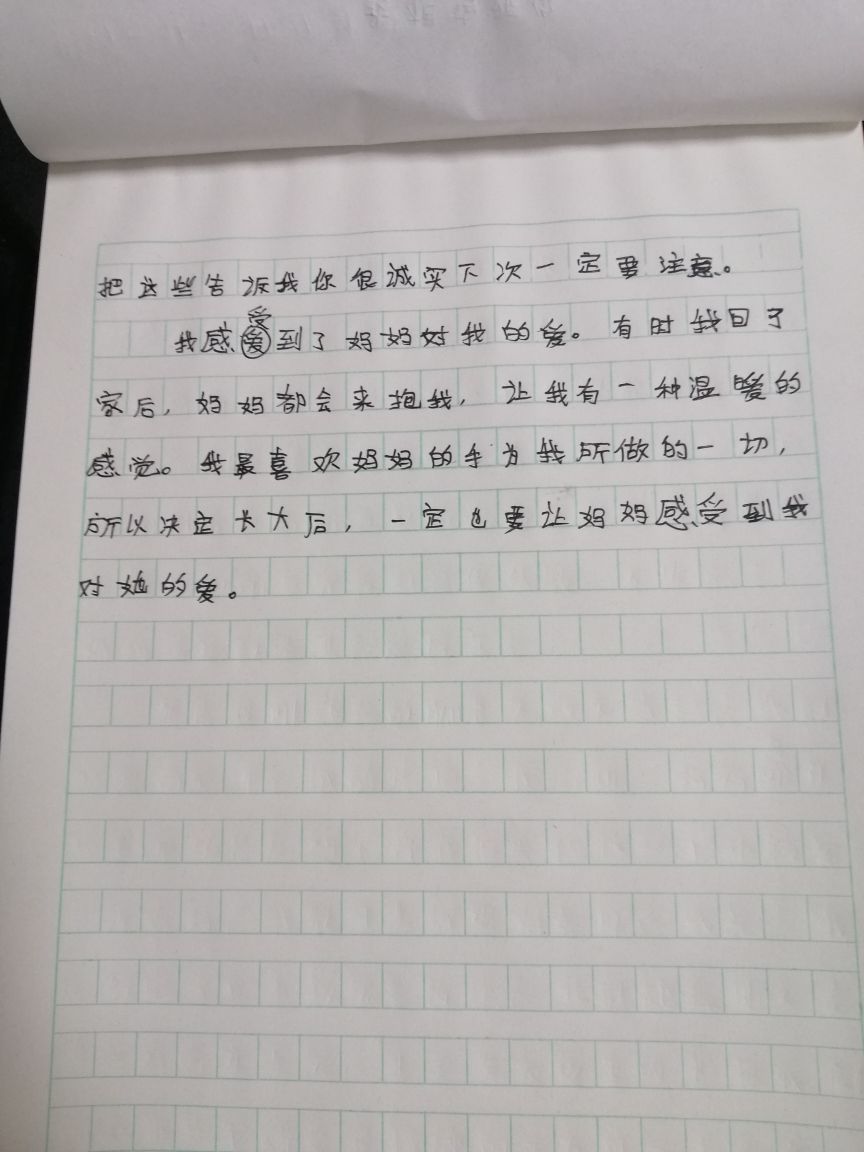 把这些告诉我你很诚实下次一定要注意。
我感受到了妈妈对我的爱。有时我回了
家后，妈妈都会来抱我，让我有一种温暖的
感觉。我最喜欢妈妈的手为我所做的一切，
所以决定长大后，一定也要让妈妈感受到我
对她的爱。